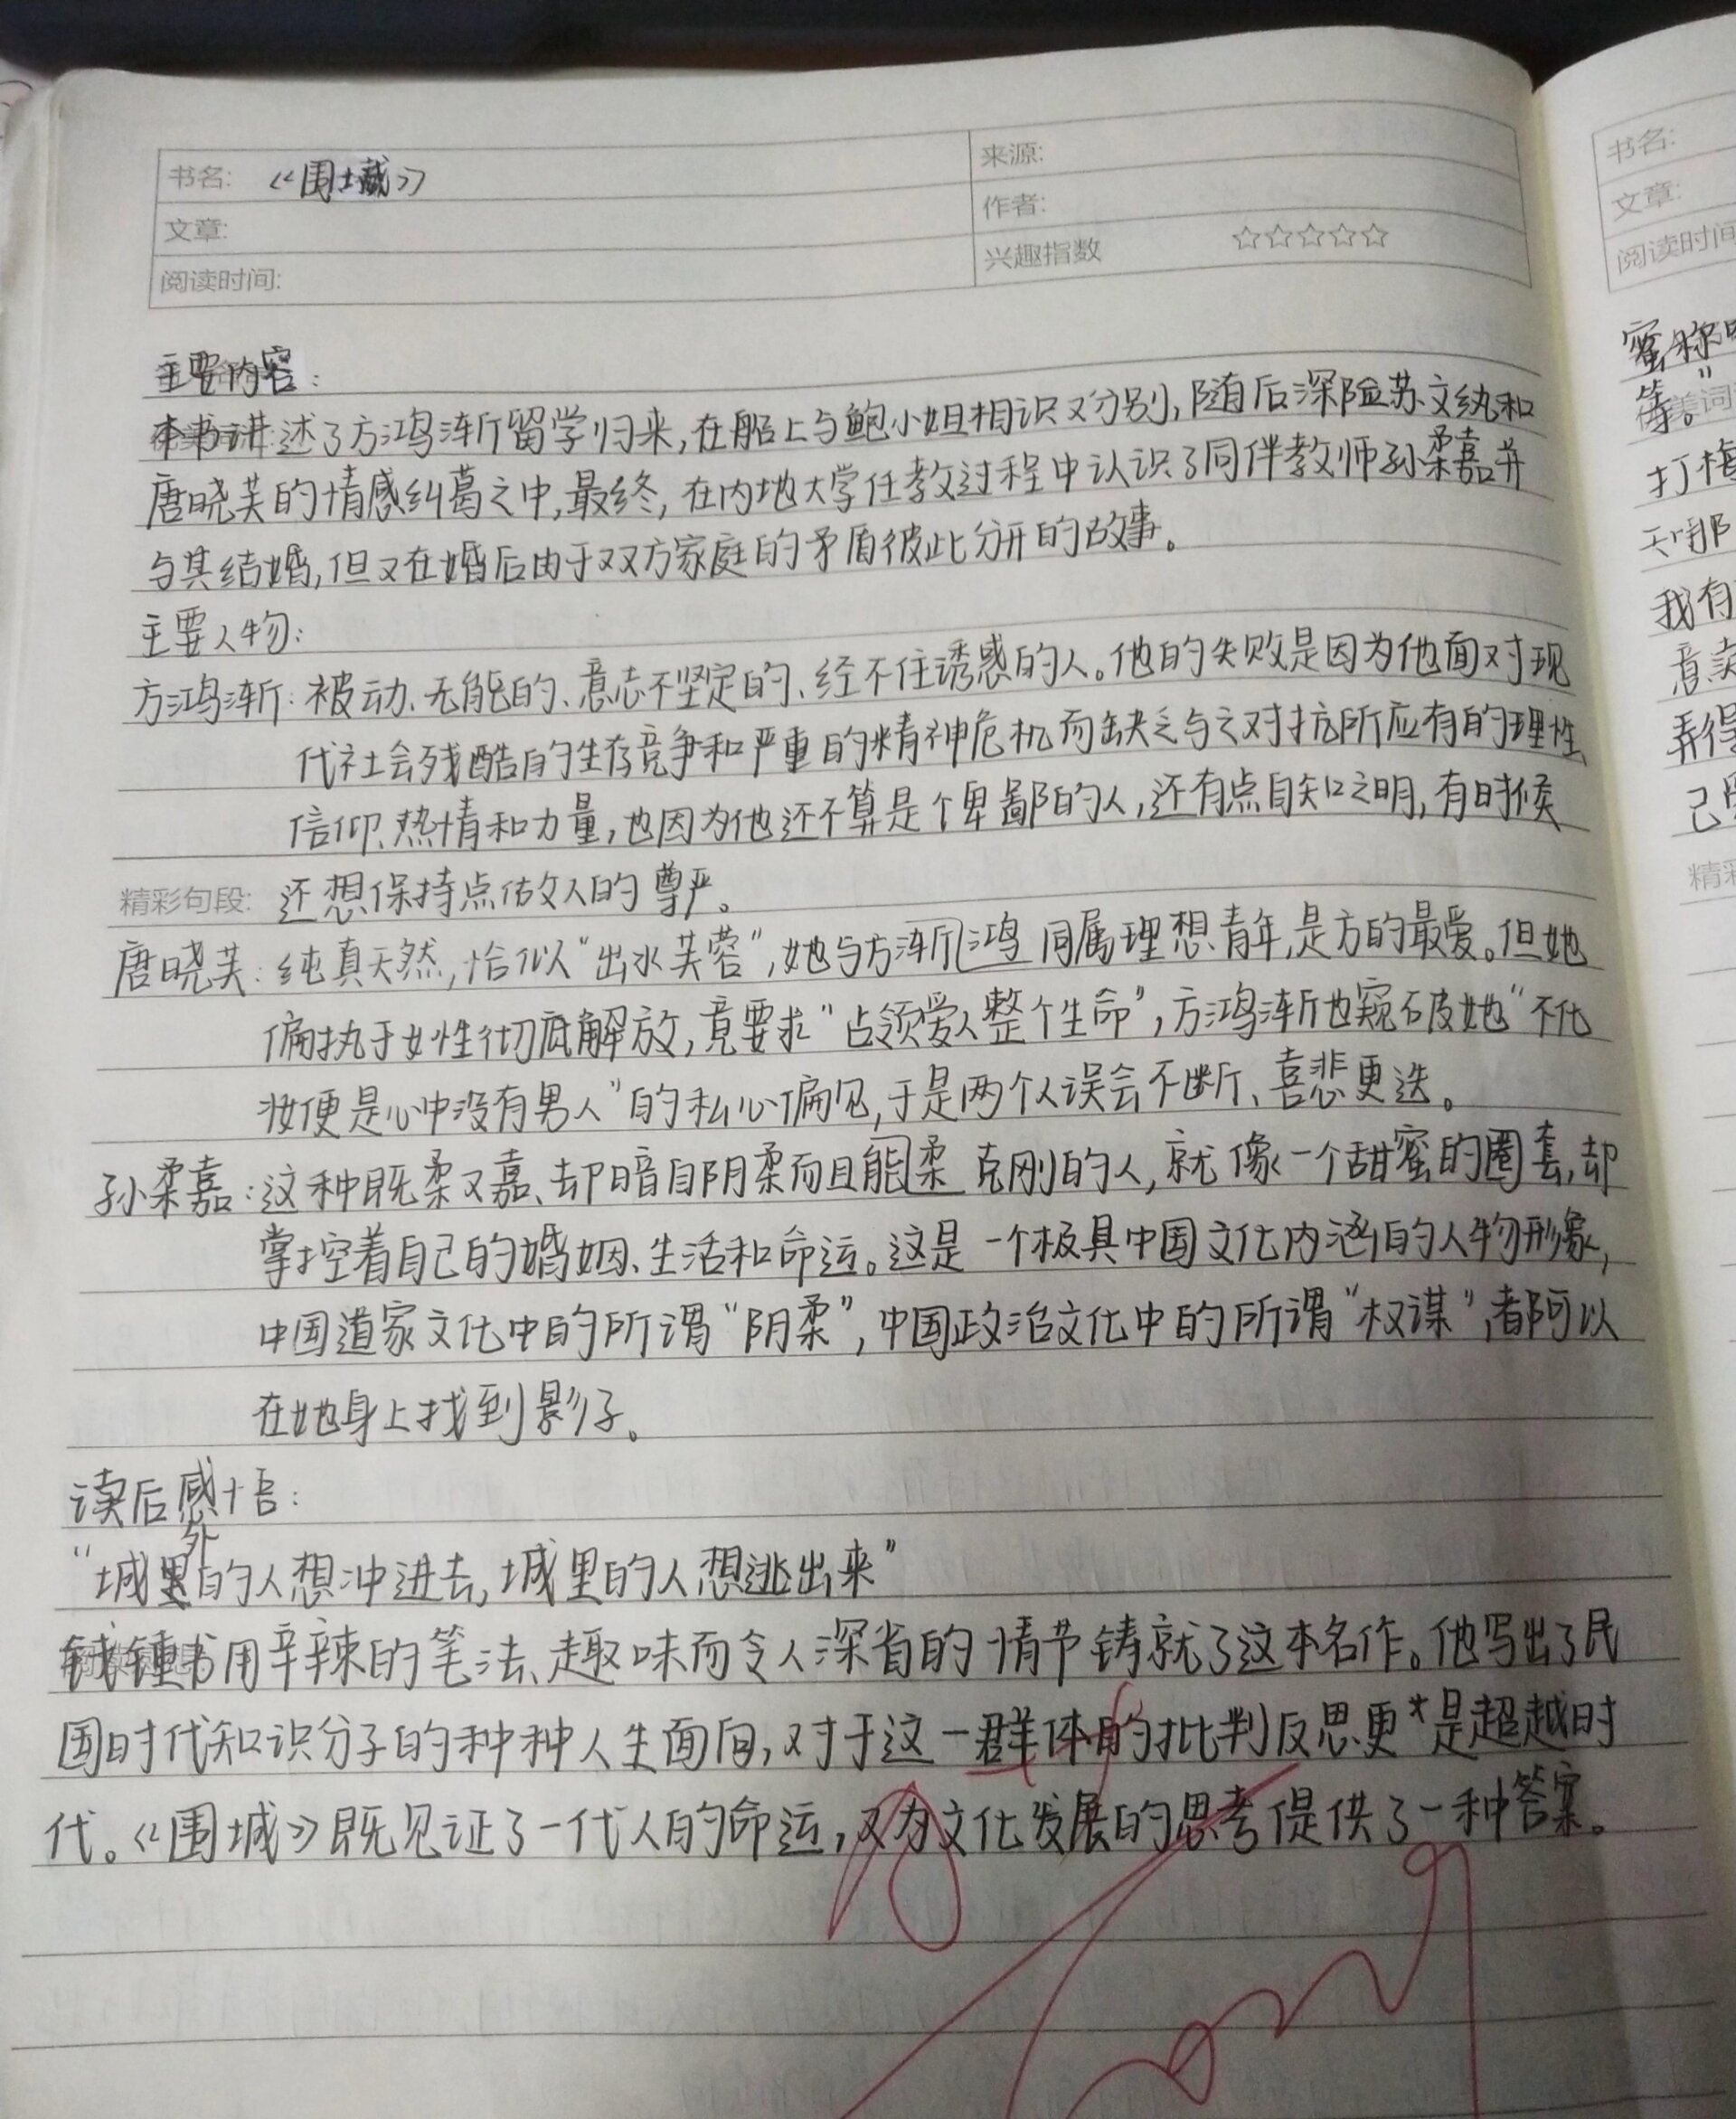 书名: 《围城》
来源:
文章:
作者:
阅读时间:
兴趣指数 ☆☆☆☆☆
主要内容:
本书讲述了方鸿渐留学归来,在船上与鲍小姐相识又分别,随后深险苏文纨和
唐晓芙的情感纠葛之中,最终,在内地大学任教过程中认识了同伴教师孙柔嘉并
与其结婚,但又在婚后由于双方家庭的矛盾彼此分开的故事。
主要人物:
方鸿渐:被动、无能的、意志不坚定的、经不住诱惑的人。他的失败是因为他面对现
代社会残酷的生存竞争和严重的精神危机而缺乏与之对抗所应有的理性、
信仰、热情和力量,也因为他还不算是个卑鄙的人,还有点自知之明,有时候
精彩句段: 还想保持点做人的尊严。
唐晓芙:纯真天然,恰似“出水芙蓉”,她与方渐鸿同属理想青年,是方的最爱。但她
偏执于女性彻底解放,竟要求“占领爱人整个生命”,方鸿渐也窥破她“不化
妆便是心中没有男人”的私心偏见,于是两个人误会不断、喜悲更迭。
孙柔嘉:这种既柔又嘉、却暗自阴柔而且能柔克刚的人,就像一个甜蜜的圈套,却
掌控着自己的婚姻、生活和命运。这是一个极具中国文化内涵的人物形象,
中国道家文化中的所谓“阴柔”,中国政治文化中的所谓“权谋”,都可以
在她身上找到影子。
读后感悟:
“城外的人想冲进去,城里的人想逃出来”
钱锺书用辛辣的笔法、趣味而令人深省的情节铸就了这本名作。他写出了民
国时代知识分子的种种人生面向,对于这一群体的批判反思更是超越时
代。《围城》既见证了一代人的命运,又为文化发展的思考提供了一种答案。
书名:
文章:
阅读时间
等。”
打梅
我有
意卖
弄得
精彩